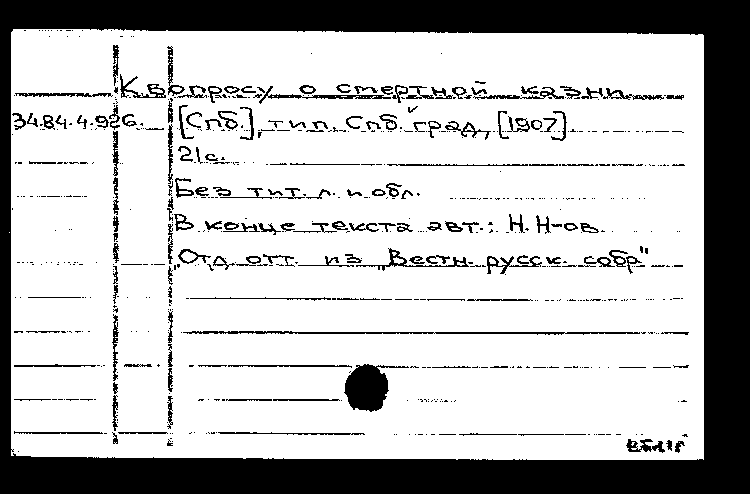 К вопросу о смертной казни
34.84.4.926.
[Спб.], тип. Спб. град., [1907].
21с.
Без тит. л. и обл.
В конце текста авт.: Н. Н-ов.
"Отд. отт. из „Вестн. русск. собр"